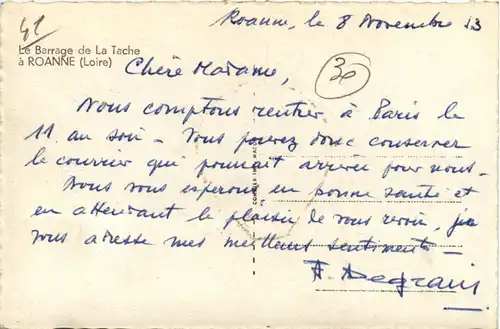 41
Roanne, le 8 Novembre 53
Le Barrage de La Tache
à ROANNE (Loire)
30
Chère Madame,
Nous comptons rentrer à Paris le
11 au soir - Vous pouvez donc conserver
le courrier qui pourrait arriver pour nous -
Nous vous espérons en bonne santé et
en attendant le plaisir de vous revoir, je
vous adresse mes meilleurs sentiments -